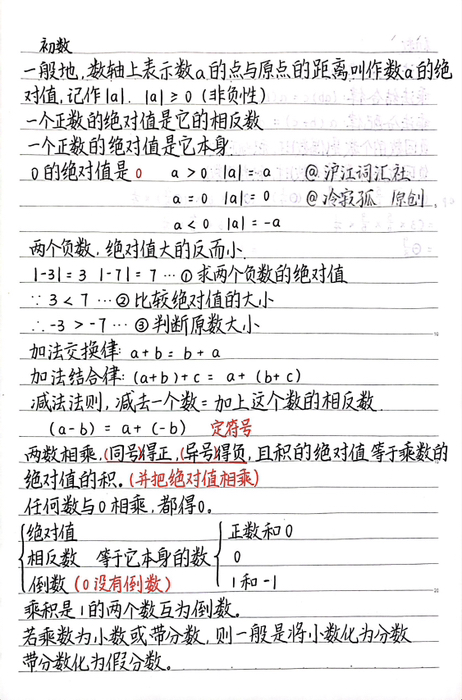 初数
一般地,数轴上表示数a的点与原点的距离叫作数a的绝
对值,记作|a|. |a|≥0(非负性)
一个正数的绝对值是它的相反数
一个正数的绝对值是它本身
0的绝对值是0 a>0 |a|=a @沪江词汇社
a=0 |a|=0 @冷寂孤 原创
a<0 |a|=-a
两个负数,绝对值大的反而小.
|-3|=3 |-7|=7…①求两个负数的绝对值
∵3<7…②比较绝对值的大小
∴-3>-7…③判断原数大小
加法交换律:a+b=b+a
加法结合律:(a+b)+c=a+(b+c)
减法法则,减去一个数=加上这个数的相反数.
(a-b)=a+(-b) 定符号
两数相乘,(同号)得正,(异号)得负,且积的绝对值等于乘数的
绝对值的积.(并把绝对值相乘)
任何数与0相乘,都得0。
绝对值 正数和0
相反数 等于它本身的数 0
倒数(0没有倒数) 1和-1
乘积是1的两个数互为倒数。
若乘数为小数或带分数,则一般是将小数化为分数
带分数化为假分数。